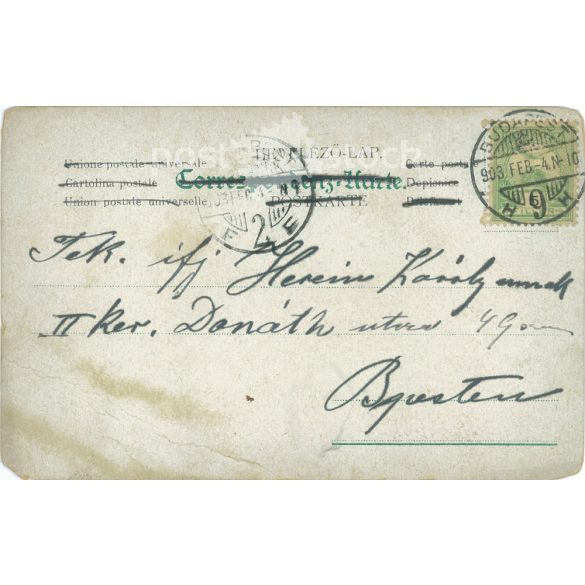 LEVELEZŐ-LAP
Unione postale universale
Carte postale
Cartolina postale
Correspondenz-Karte.
Dopisnice
Union postale universelle
POSTKARTE
BUDAPEST
903 FEB -4. N 10
H 9 H
903 FEB -4. N
2
Tek. ifj Herein Károly urnak
II ker. Donáth utca 49
Bpesten